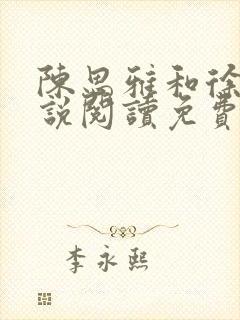 陳思雅和徐
說閱讀免費
李永熙